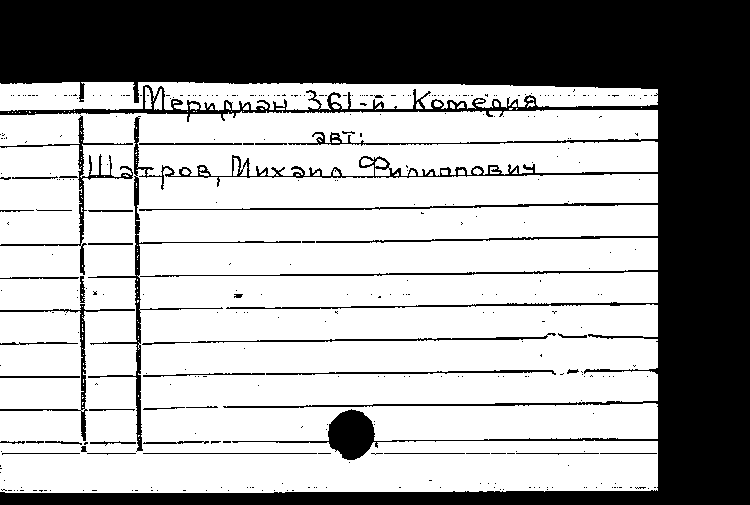 Меридиан 361-й. Комедия
авт:
Шатров, Михаил Филиппович.